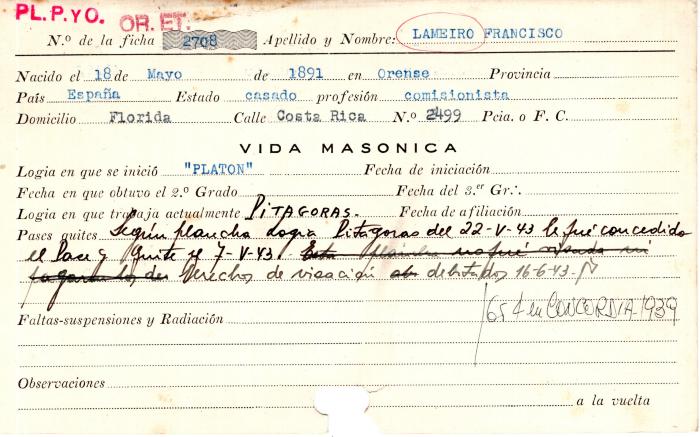 PL.P.YO. OR. ET.
N.º de la ficha 2708 Apellido y Nombre: LAMEIRO FRANCISCO
Nacido el 18 de Mayo de 1891 en Orense Provincia
País España Estado casado profesión comisionista
Domicilio Florida Calle Costa Rica N.º 2499 Pcia. o F. C.
VIDA MASONICA
Logia en que se inició "PLATON" Fecha de iniciación
Fecha en que obtuvo el 2.º Grado Fecha del 3.er Gr∴
Logia en que trabaja actualmente PITAGORAS. Fecha de afiliación
Pases quites Según plancha Logia Pitagoras del 22-V-43 le fué concedido
el Pase y Quite el 7-V-43. Esta plancha no fué visada ni
Derechos de visación debitados 16-6-43.
Faltas-suspensiones y Radiación en CONCORDIA-1939
Observaciones
a la vuelta